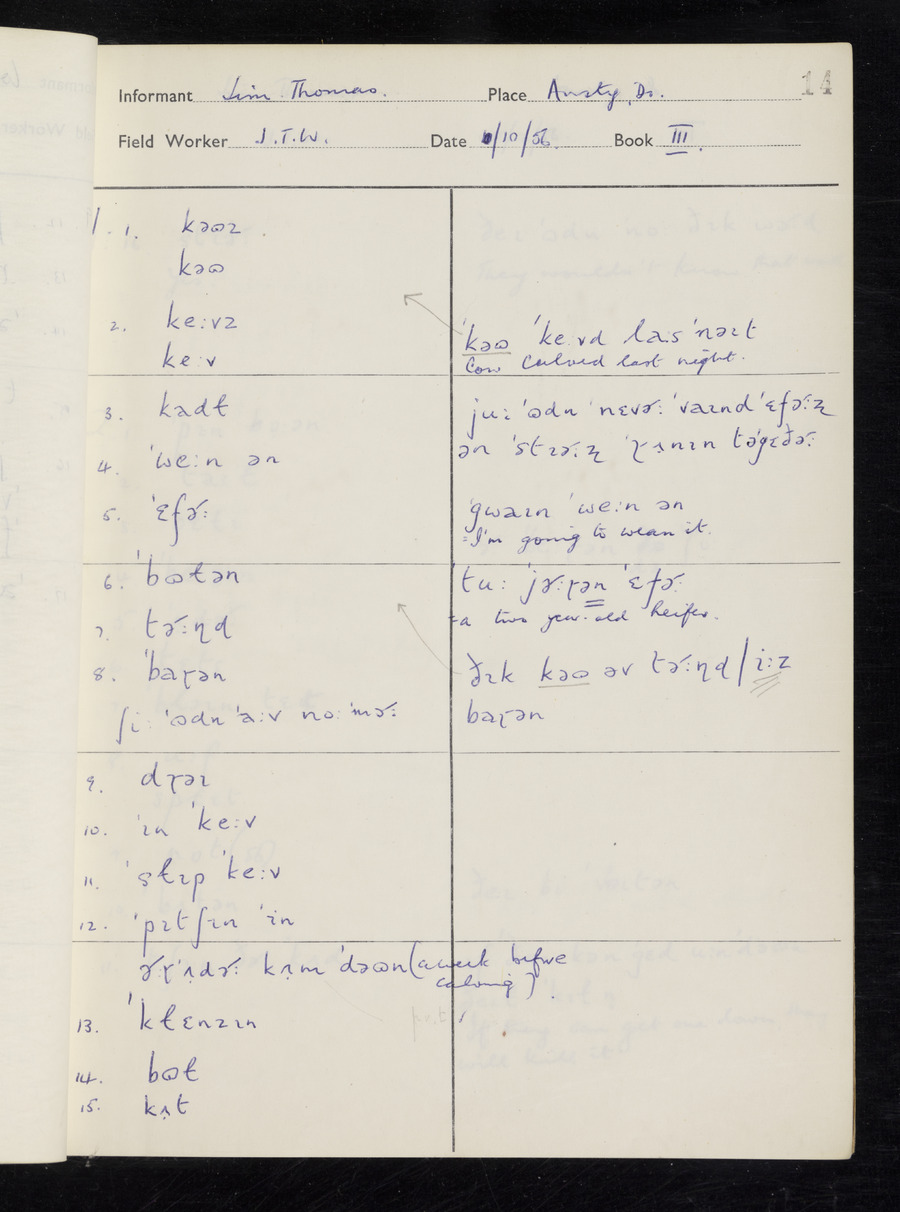 14
Informant Jim Thomas. Place Ansty, Do.
Field Worker J.T.W. Date /10/56. Book III.
1. 1. kəɷz.
kəɷ
2. ke:vz
ke:v
ˈkəɷ ˈke:vd la:s ˈnəɪt
Cow calved last night.
3. kadɫ
4. ˈwe:n ən
5. ˈɛfə˞:
ju: ˈɷdn ˈnɛvə˞: ˈvaɪnd ˈɛfə˞:ʐ
ən ˈstɪə˞:ʐ
ˈgwaɪn ˈwe:n ən
= I'm going to wean it.
6. ˈbɷtən
7. tə˞:ɳd
8. ˈbaɽən
ʃi: ˈɷdn ˈa:v no: ˈmə˞:
tu: ˈjə˞:ɽən ˈɛfə˞:
= a two year-old heifer.
ðɪk kəɷ əv tə˞:ɳd / i:z
baɽən
9. dɽəɪ
10. ˈɪn ˈke:v
11. ˈsɫɪp ˈke:v
12. ˈpɪtʃɪn ˈɪn
kʌ̣m ˈdəɷn (a week before
calving).
13. ˈkɫɛnzɪn
14. bɷɫ
15. kʌ̣t